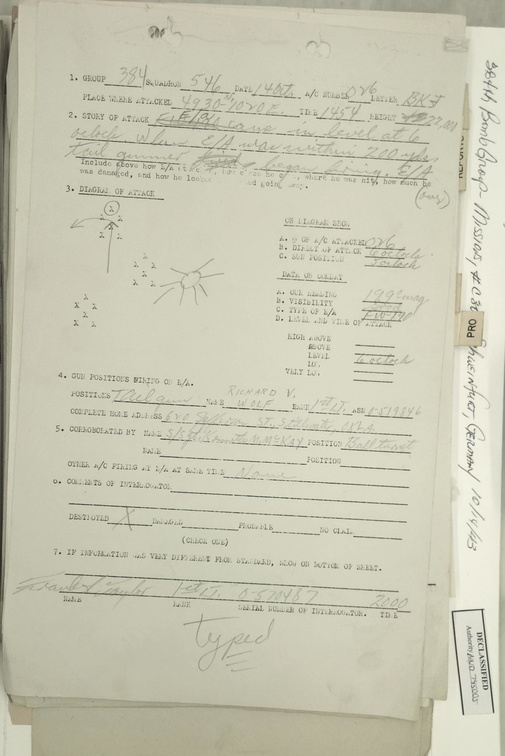 1. GROUP 384 SQUADRON 546 DATE 14 Oct. A/C NUMBER 026 LETTER BK-F
PLACE WHERE ATTACKED 4930-1020E. TIME 1454 HEIGHT 22,000
2. STORY OF ATTACK E/A came in level at 6
oclock when E/A was within 200 yds
tail gunner began firing. E/A
Include above how E/A where he was hit, how much he (over)
was damaged, and how he looked going away.
3. DIAGRAM OF ATTACK
X
X X
X
X X
X
X X
X
X X
X
X X
ON DIAGRAM SHOW
A. # OF A/C ATTACKED 026
B. DIRECT OF ATTACK 6 oclock
C. SUN POSITION oclock
DATA ON COMBAT
A. OUR HEADING mag
B. VISIBILITY
C. TYPE OF E/A FW-190
D. LEVEL AND TIME OF ATTACK
HIGH ABOVE
ABOVE
LEVEL 6 oclock
LOW
VERY LOW
4. GUN POSITIONS FIRING ON E/A.
POSITIONS Tail gun NAME RICHARD V. WOLF RANK 1st LT. ASN 0-519846
COMPLETE HOME ADDRESS 620 Jefferson St. Stillwater, Okla
5. CORROBORATED BY NAME McKay POSITION Ball turret
NAME POSITION
OTHER A/C FIRING AT E/A AT SAME TIME None
6. COMMENTS OF INTERROGATOR
DESTROYED X DAMAGED PROBABLE NO CLAIM
(CHECK ONE)
7. IF INFORMATION WAS VERY DIFFERENT FROM STANDARD, SHOW ON BOTTOM OF SHEET.
Taylor 1st LT. 0-570467 2000
NAME RANK SERIAL NUMBER OF INTERROGATOR. TIME
typed
384th Bomb Group - Mission, Schweinfurt, Germany 10/14/43
PRO
DECLASSIFIED
Authority NND 745005